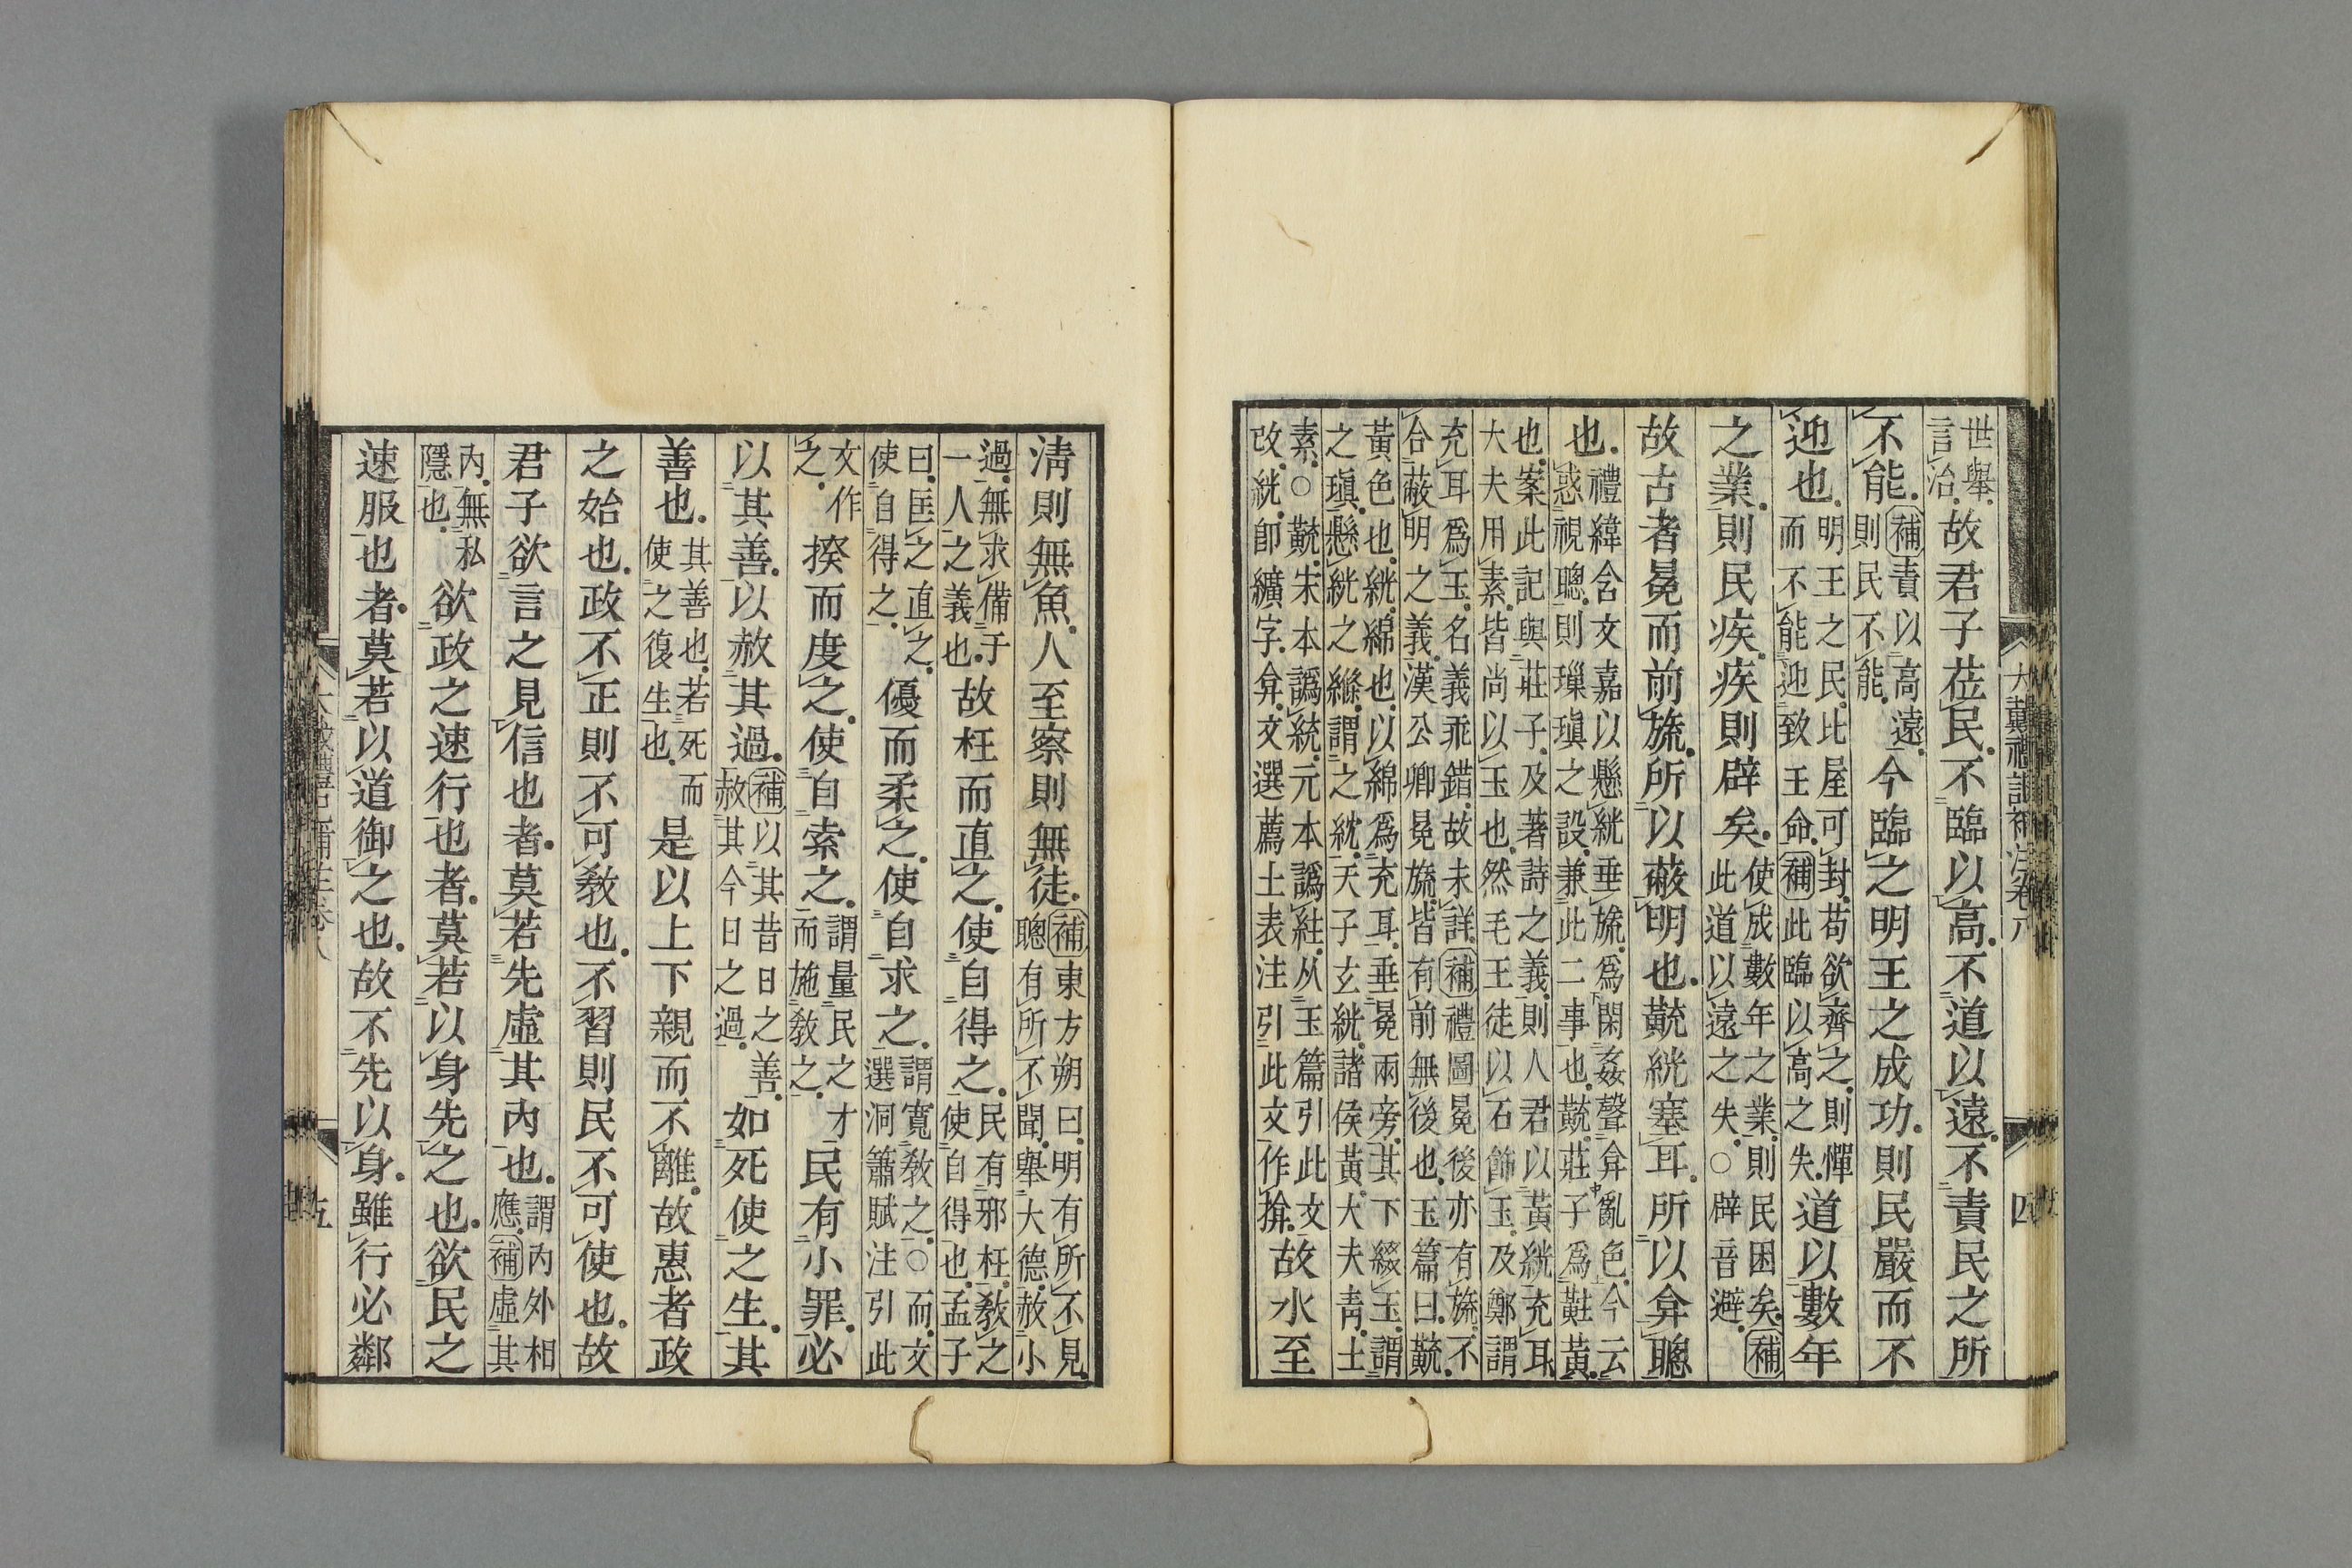 世舉言治故君子莅民不臨以高不道以遠不責民之所
不能補責以高遠則民不能今臨之明王之成功則民嚴而不
迎也明王之民比屋可封苟欲齊之則憚而不能迎致王命補此臨以高之失道以數年
之業則民疾疾則辟矣使成數年之業則民困矣補此道以遠之失○辟音避
故古者冕而前旒所以蔽明也黈絖塞耳所以弇聰
也禮緯含文嘉以懸絖垂旒爲閑姦聲弇亂色今云惑視聰則璅瑱之設兼此二事也黈莊子爲黈黃
也案此記與莊子及著詩之義則人君以黃絖充耳大夫用素皆尚以玉也然毛王徒以石飾玉及鄭謂
充耳爲玉名義乖錯故未詳補禮圖冕後亦有旒不合蔽明之義漢公卿冕旒皆有前無後也玉篇曰黈
黃色也絖綿也以綿爲充耳垂冕兩旁其下綴玉謂之瑱懸絖之縧謂之紞天子玄絖諸侯黃大夫靑士
素○黈宋本譌統元本譌紸从玉篇引此文改絖卽纊字弇文選薦士表注引此文作揜故水至
淸則無魚人至察則無徒補東方朔曰明有所不見聰有所不聞舉大德赦小
過無求備于一人之義也故枉而直之使自得之民有邪枉敎之使自得也孟子
曰匡之直之使自得之優而柔之使自求之謂寬敎之○而文選洞簫賦注引此
文作之揆而度之使自索之謂量民之才而施敎之民有小罪必
以其善以赦其過補以其昔日之善赦其今日之過如死使之生其
善也其善也若死而使之復生也是以上下親而不離故惠者政
之始也政不正則不可敎也不習則民不可使也故
君子欲言之見信也者莫若先虛其內也謂內外相應補虛其
內無私隱也欲政之速行也者莫若以身先之也欲民之
速服也者莫若以道御之也故不先以身雖行必鄰